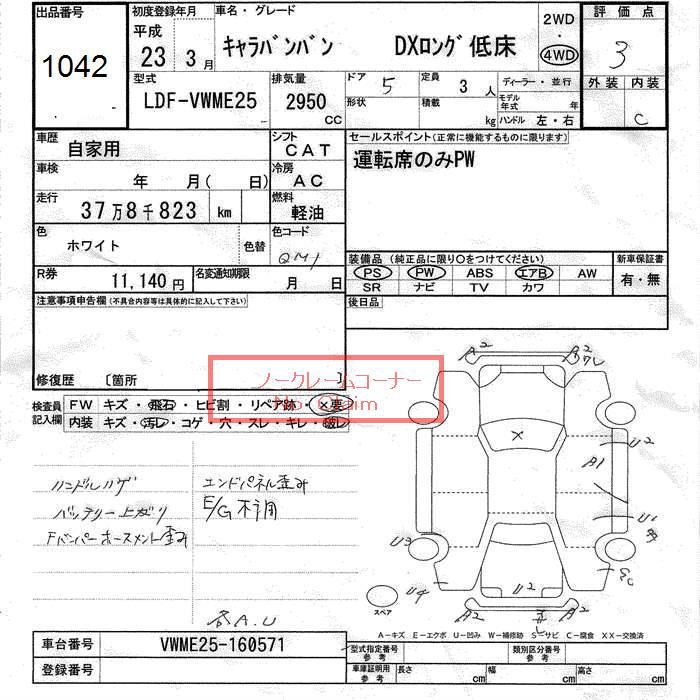 出品番号 初度登録年月 車名・グレード 2WD 評価点
1042 平成 23 3月 キャラバンバン DXロング 低床 4WD 3
型式 排気量 ドア 定員 ディーラー・並行 外装 内装
LDF-VWME25 2950 CC 5 3 人 モデル年式 年 C
形状 積載 kg ハンドル 左・右
車歴 シフト セールスポイント(正常に機能するものに限ります)
自家用 CAT 運転席のみPW
車検 冷房
年 月( 日) AC
走行 燃料
37万8千823 km 軽油
色 色替 色コード
ホワイト QM1
装備品 (純正品に限り○をつけてください) 新車保証書
R券 名変通知期限 PS PW ABS エアB AW 有・無
11,140円 月 日 SR ナビ TV カワ
注意事項申告欄(不具合内容等は具体的に記入して下さい) 後日品
修復歴 〔箇所 〕
ノークレームコーナー
No Claim
検査員記入欄 FW キズ・飛石・ヒビ割・リペア跡・×要
内装 キズ・汚レ・コゲ・穴・スレ・キレ・破レ
ハンドルハゲ エンドパネル歪み
バッテリー上がり E/G不調
Fバンパーホースメント歪み
各A.U
A2 A2
×
U2
A1
U1
U3
U4 U2
スペア A2 A2
A-キズ E-エクボ U-凹み W-補修跡 S-サビ C-腐食 XX-交換済
車台番号 VWME25-160571 型式指定番号 参考 類別区分番号 参考
登録番号 車庫証明用 参考 長さ cm 幅 cm 高さ cm